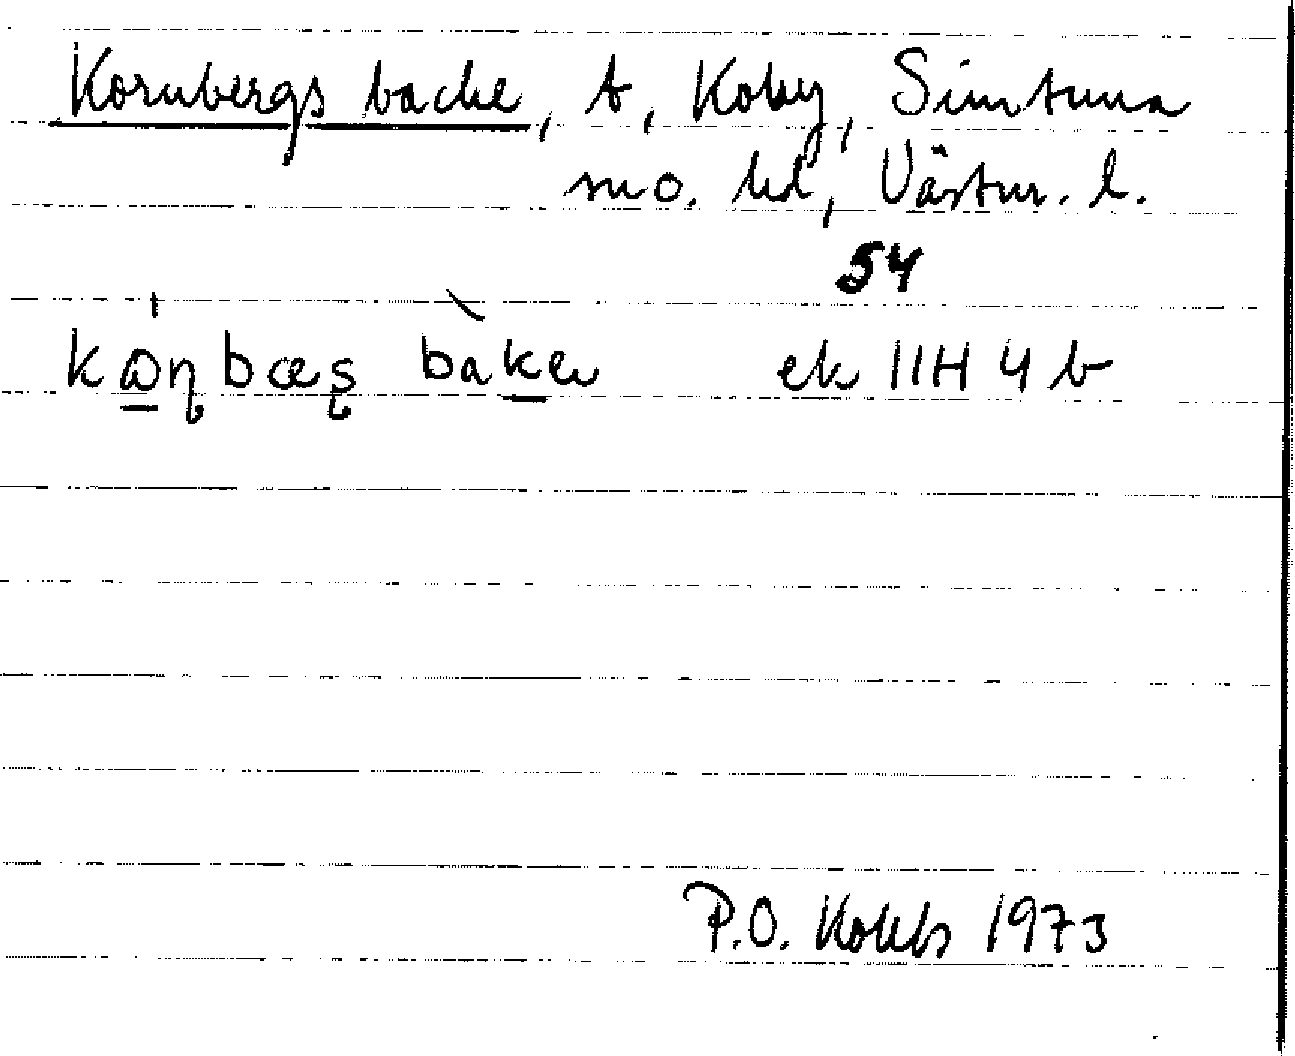 Kornbergs backe, t, Kolby, Simtuna
so. hd, Västm. l.
54
kɷɳbæʂ bakɐ ek 11H 4 b
P.O. 1973